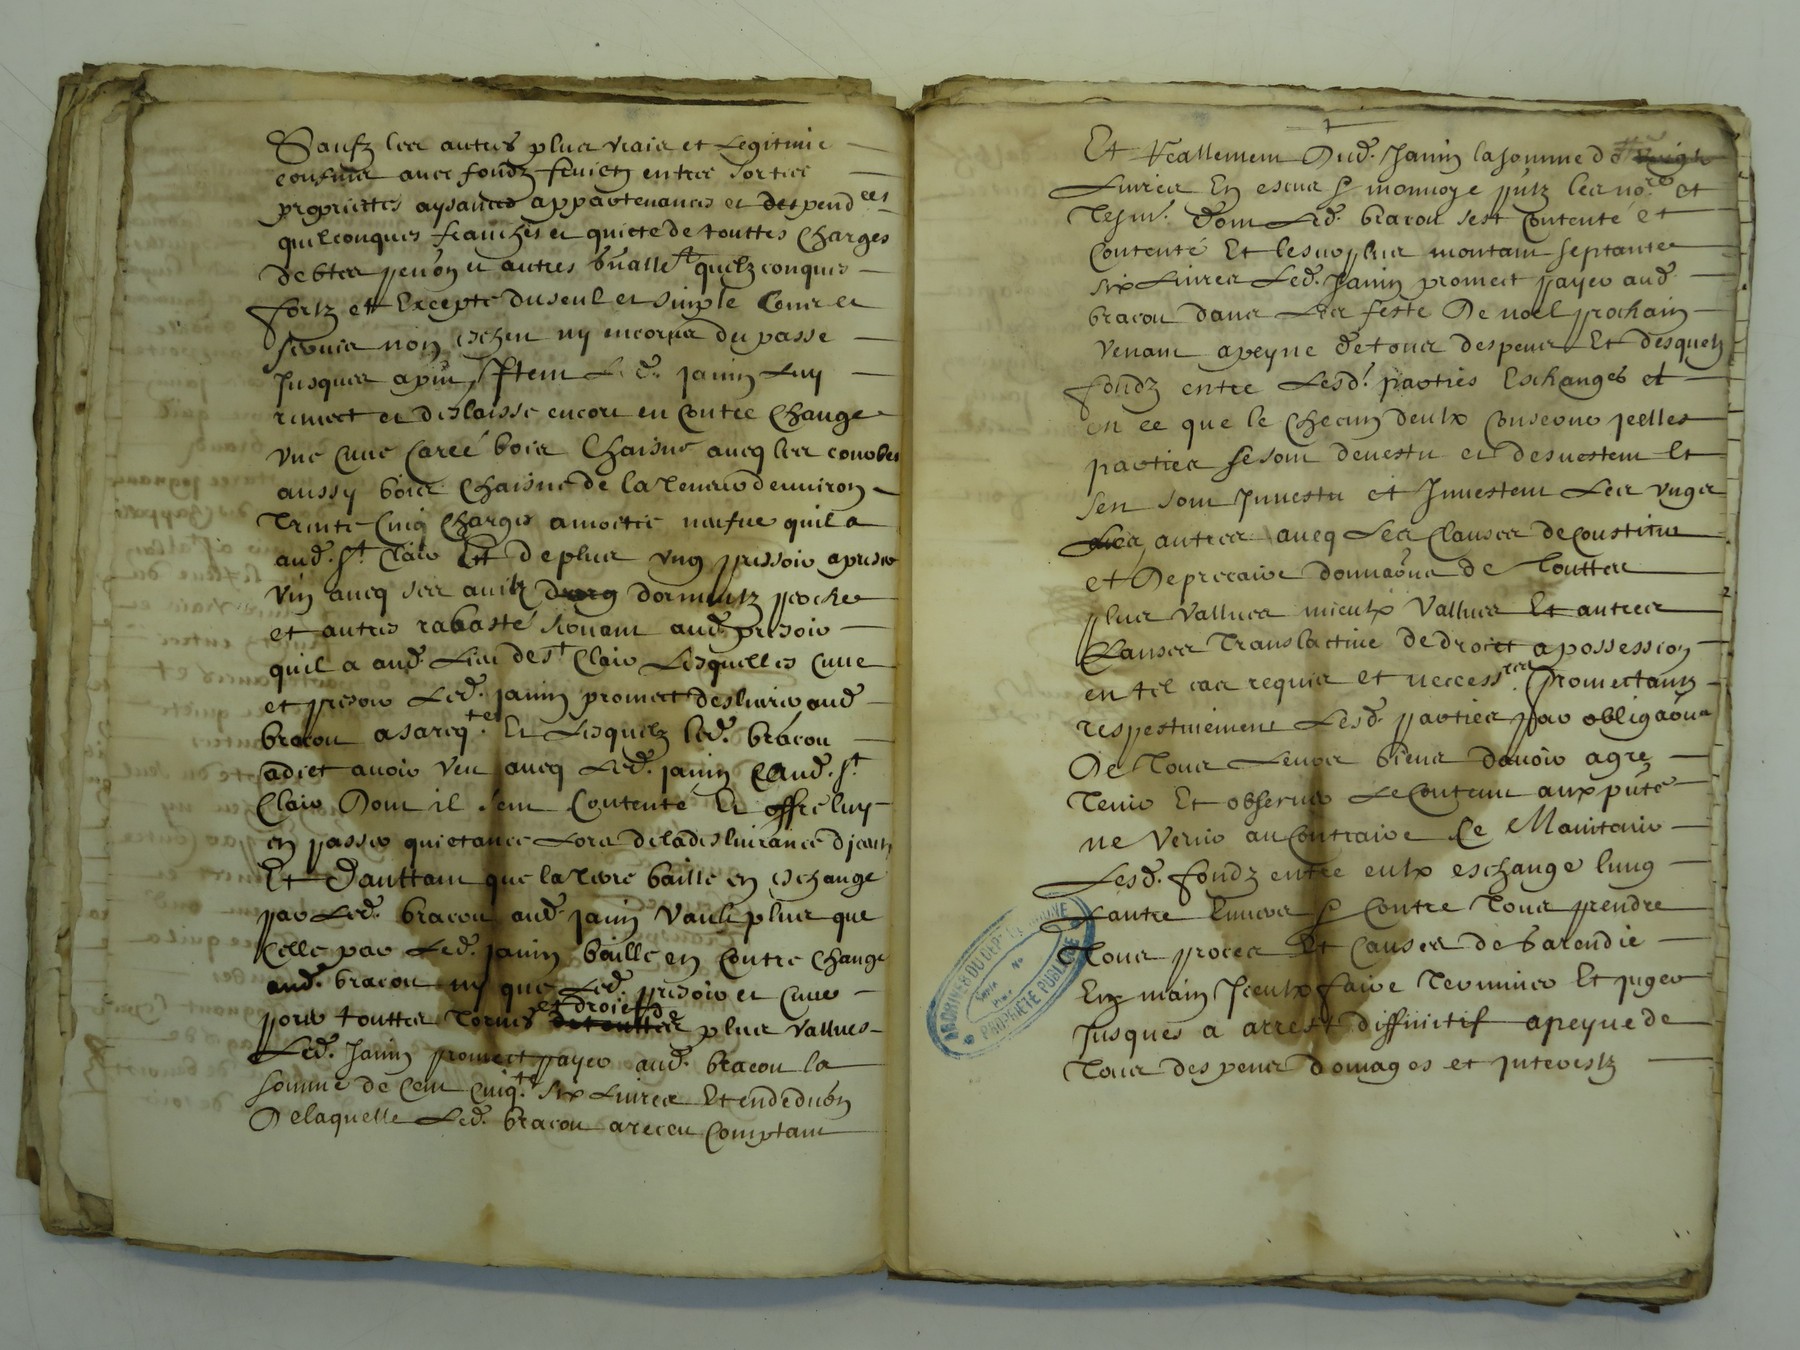 Saufz les autres plus vrais et Legitimes
confins avec fondz fruictz entrees sorties
proprietes aysances appartenances et despend.ces
quelconques franches et quicte de touttes charges
debtes pention et autres quelzconques
fortz et Excepte du seul et simple Cens et
servis non escheu ny encorus du passe
Jusques a Item Led. Janin Luy
remect et deslaisse encore en Contre Change
une Cuve Caree bois Chaisne avecq les
aussy bois Chaisne de la Teneur denviron
Trente Cinq Charges a moitie neufve quil a
aud. St Clair Et de plus ung pressoir a presser
vin avecq ses dormantz
et autres Servant aud. presoir
quil a aud. Lieu de St Clair Lesquelles Cuve
et presoir Led. Janin promect deslivrer aud
bracon a sa req.te Et Lesquelz Led. bracon
a dict avoir veu avecq Led. Janin aud. St
Clair Dont il sen Contente Et offre luy
en passer quictance Lors de la deslivrance diceux
Et Dauttant que la Terre baille en eschange
par Led. bracon aud. Janin Vault plus que
Celle par Led. Janin baille en Contre Change
aud. bracon ny que Led. presoir et Cuve
pour touttes Tornes et droictz plus vallues
Led. Janin promect payer aud. bracon la
somme de Cent Cinq.te six Livres Et en deduon
De laquelle Led. bracon a receu Comptant
Et Reallement Dud. Janin la somme de
Livres En escus &amp; monnoye pntz les no.re et
Tesm. Dont Led. bracon sest Contente et
Contente Et le surplus montant septante
six Livres Led. Janin promect payer aud
bracon dans Les feste De noel prochain
venant a peyne de tous despens Et desquelz
fondz entre Lesd. parties Eschanges et
en ce que le Checun deulx Conserne icelles
parties se sont devestu et desvestent Et
sen sont Investu et Investent Les ungs
Les autres avecq Les Clauses de Constitue
et De precaire donnaons de Touttes
plus Vallues mieulx Vallues Et autres
Clauses Translactive de droict a possession
en tel cas requis et neccess.res Promectantz
respectivement Lesd. parties par obligaons
De Tous Leurs biens davoir agre
Tenir Et observer Le Contenu aux pntes
ne Venir au Contraire Se Maintenir
Lesd. fondz entre eulx eschange lung
Lautre Envers &amp; Contre Tous prendre
Tous proces Et Causes de Garendie
En main Iceulx faire Terminer Et juger
Jusques a arrest diffinitif a peyne de
Tous despens domages et interestz
ARCHIVES DU DEP.T
PROPRIÉTÉ PUBLIQUE